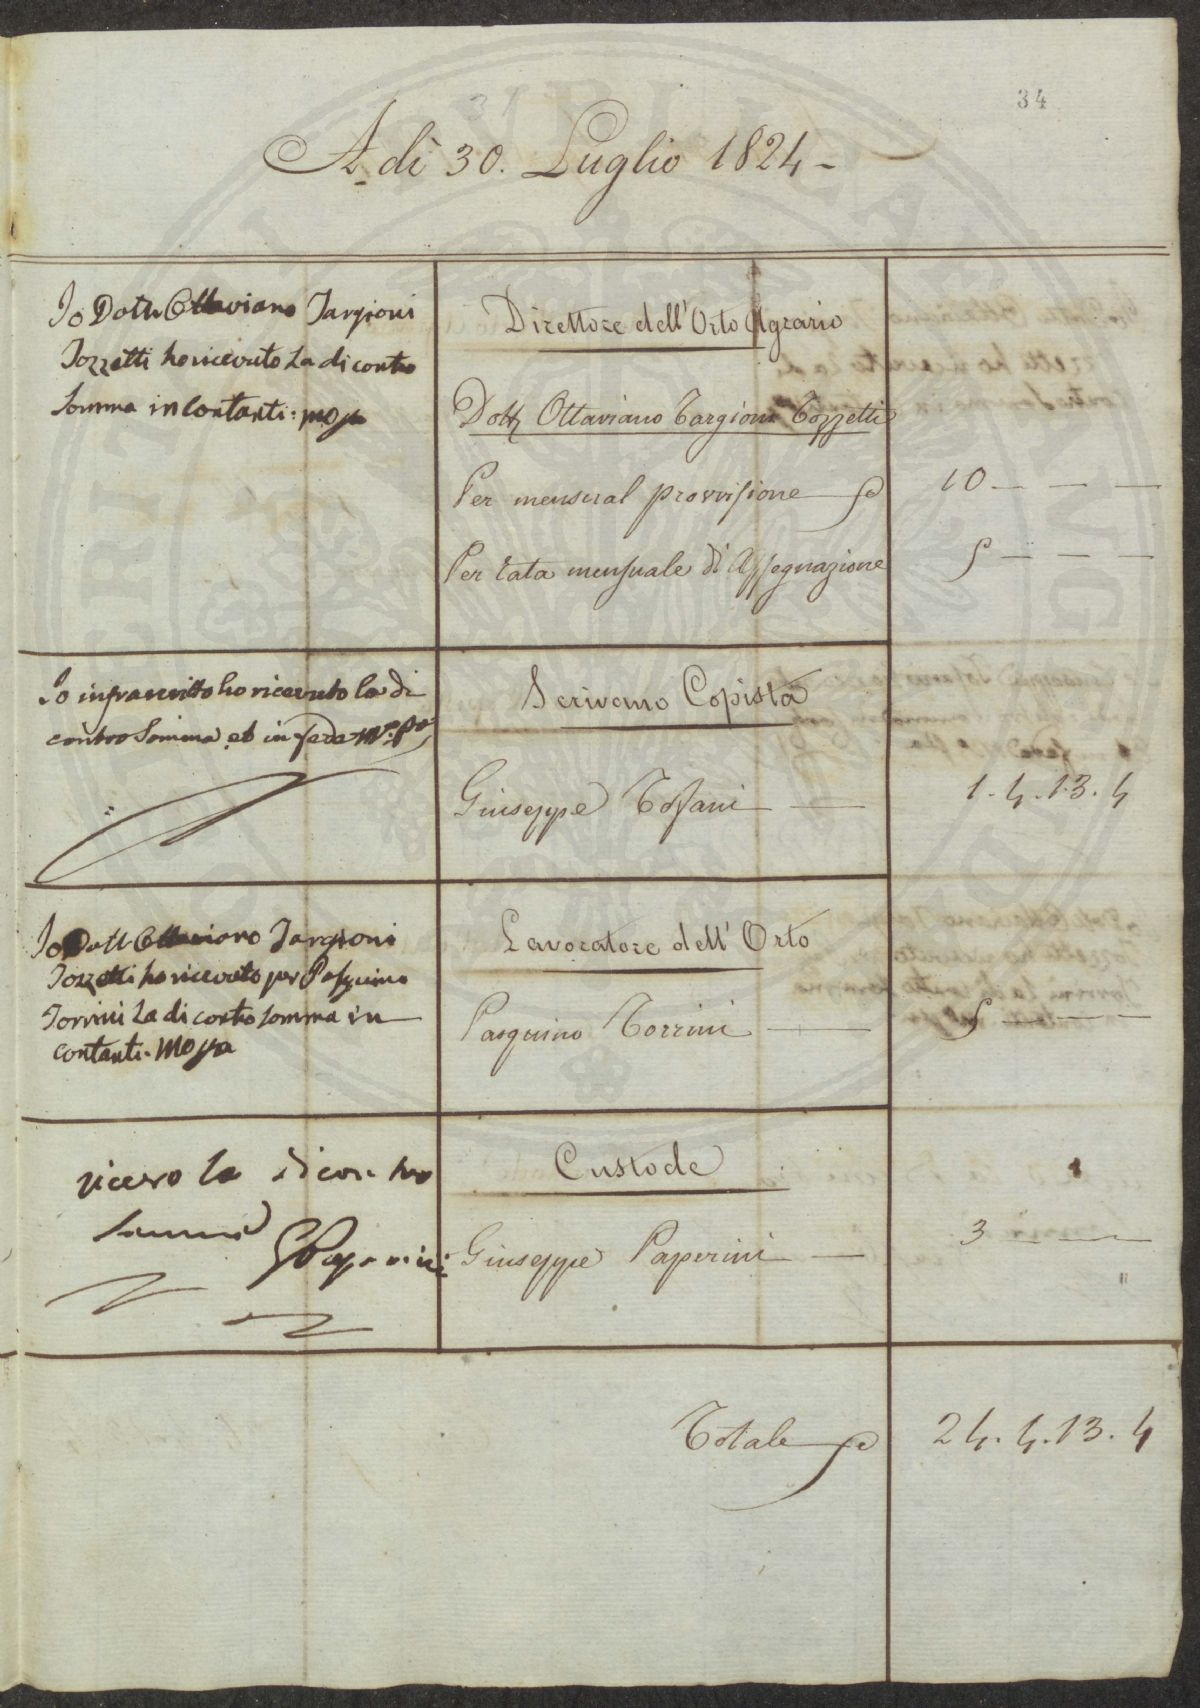 34
31
A dì 30. Luglio 1824 -
Io Dott. Ottaviano Targioni
Tozzetti ho ricevuto La di contro
Somma in Contanti: mo pa
Direttore dell'Orto Agrario
Dott Ottaviano Targioni Tozzetti
Per mensual provvisione
10 — — —
Per rata mensuale di Assegnazione
5 — — —
Io infrascritto ho ricevuto la di
contro Somma et in fede Mo: Po:
Scrivano Copista
Giuseppe Tofani —
1. 4. 13. 4
Io Dott Ottaviano Targioni
Tozzetti ho ricevuto per Pasquino
Torrini La di contro somma in
contanti. mo pa
Lavoratore dell' Orto
Pasquino Torrini —
5 — — —
ricevo la di con tro
Somma
G Paperini
Custode
Giuseppe Paperini —
3 — — —
Totale
24. 4. 13. 4